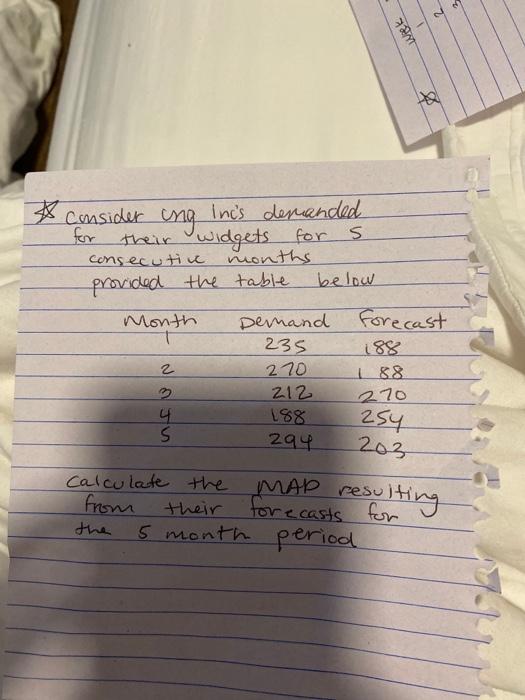 Consider ung Inc's demanded
for their widgets for 5
consecutive months
provided the table below
Month Demand Forecast
1 235 188
2 270 188
3 212 270
4 188 254
5 294 203
Calculate the MAD resulting
from their forecasts for
the 5 month period
WEEK
1
2
3